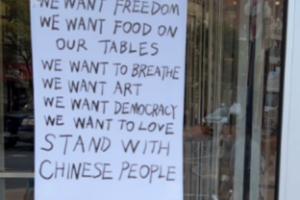 WE WANT FREEDOM
WE WANT FOOD ON
OUR TABLES
WE WANT TO BREATHE
WE WANT ART
WE WANT DEMOCRACY
WE WANT TO LOVE
STAND WITH
CHINESE PEOPLE